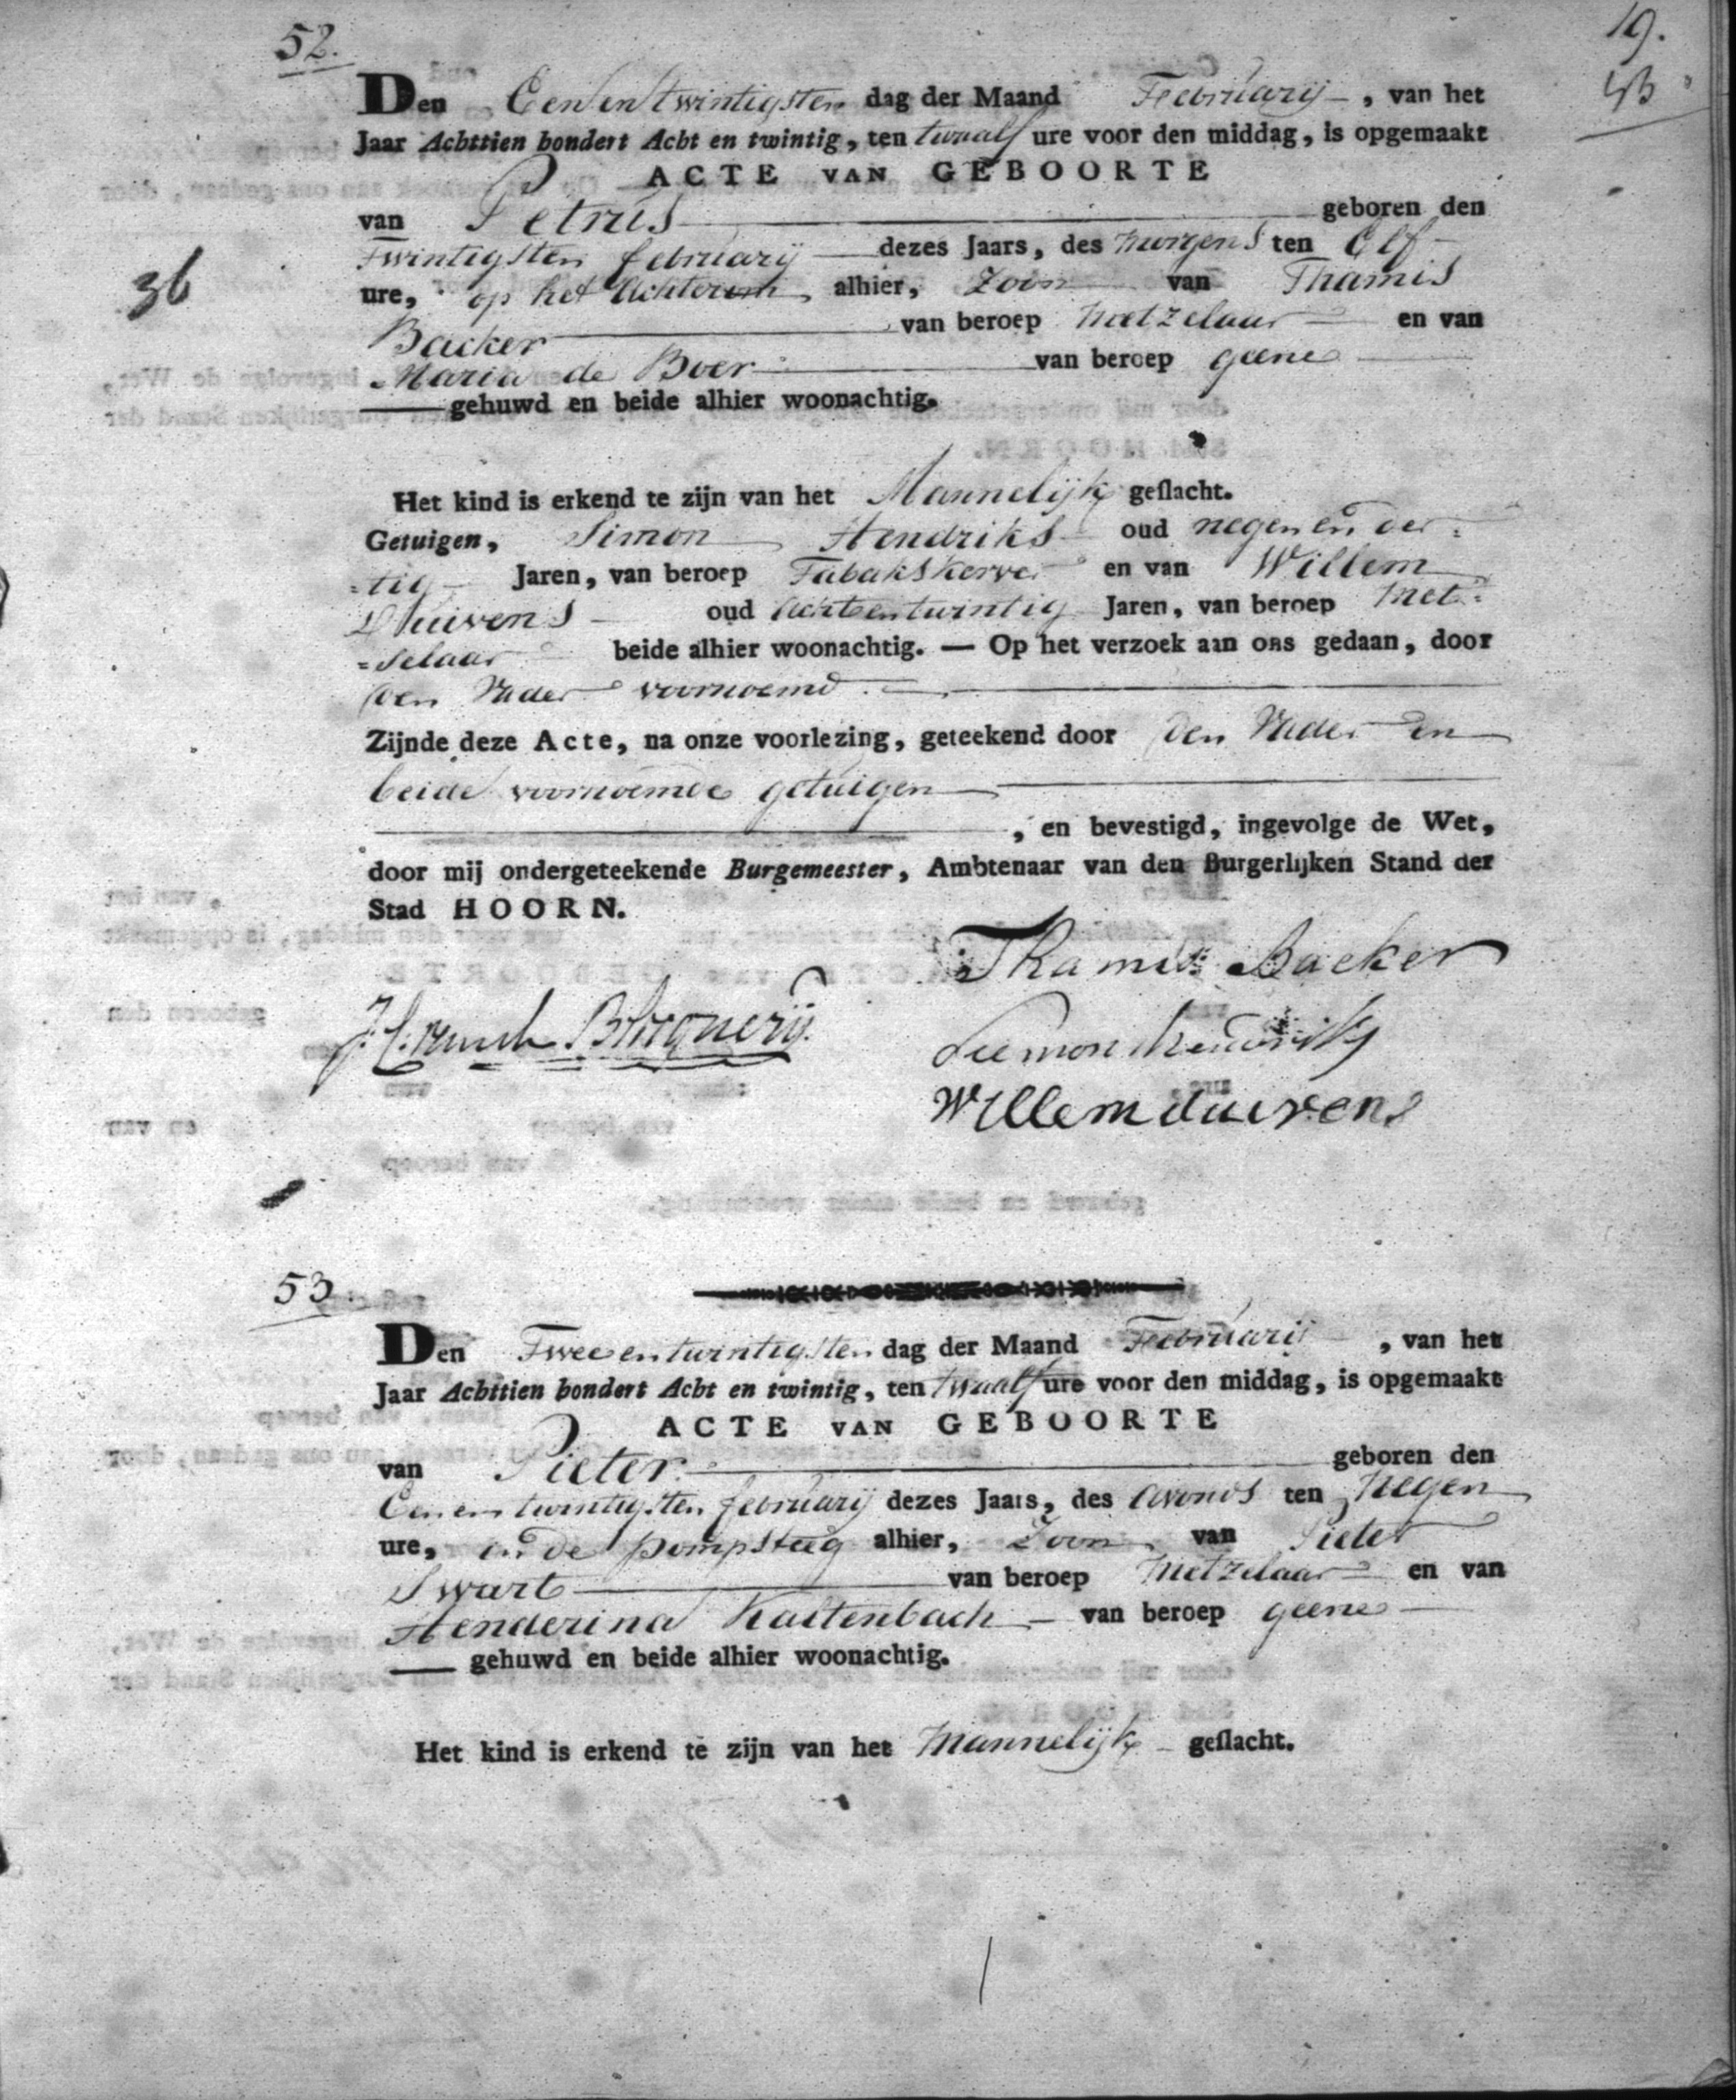 19.
52.
Den Een en twintigsten dag der Maand Februarij, van het
Jaar Achttien hondert Acht en twintig, ten twaalf ure voor den middag, is opgemaakt
ACTE VAN GEBOORTE
van Petrus geboren den
Twintigsten februarij dezes Jaars, des morgens ten Elf
36
ure, op het Achterom alhier, Zoon van Thamis
Backer van beroep Metzelaar en van
Maria de Boer van beroep geene
gehuwd en beide alhier woonachtig.
Het kind is erkend te zijn van het Mannelijk geslacht.
Getuigen, Simon Hendriks oud negen en der=
=tig Jaren, van beroep Tabakskerver en van Willem
Duivens oud Acht en twintig Jaren, van beroep Met=
=selaar beide alhier woonachtig. — Op het verzoek aan ons gedaan, door
den Vader voornoemd.
Zijnde deze Acte, na onze voorlezing, geteekend door den Vader en
beide voornoemde getuigen
, en bevestigd, ingevolge de Wet,
door mij ondergeteekende Burgemeester, Ambtenaar van den Burgerlijken Stand der
Stad HOORN.
Thamis Backer
Siemon Hendriks
Willem duivens
53.
Den Twee en twintigsten dag der Maand Februarij, van het
Jaar Achttien hondert Acht en twintig, ten twaalf ure voor den middag, is opgemaakt
ACTE VAN GEBOORTE
van Pieter geboren den
Een en twintigsten februarij dezes Jaars, des avonds ten Negen
ure, in de pompsteeg alhier, Zoon van Pieter
Swart van beroep Metzelaar en van
Henderina Kaltenbach van beroep geene
gehuwd en beide alhier woonachtig.
Het kind is erkend te zijn van het Mannelijk geslacht.